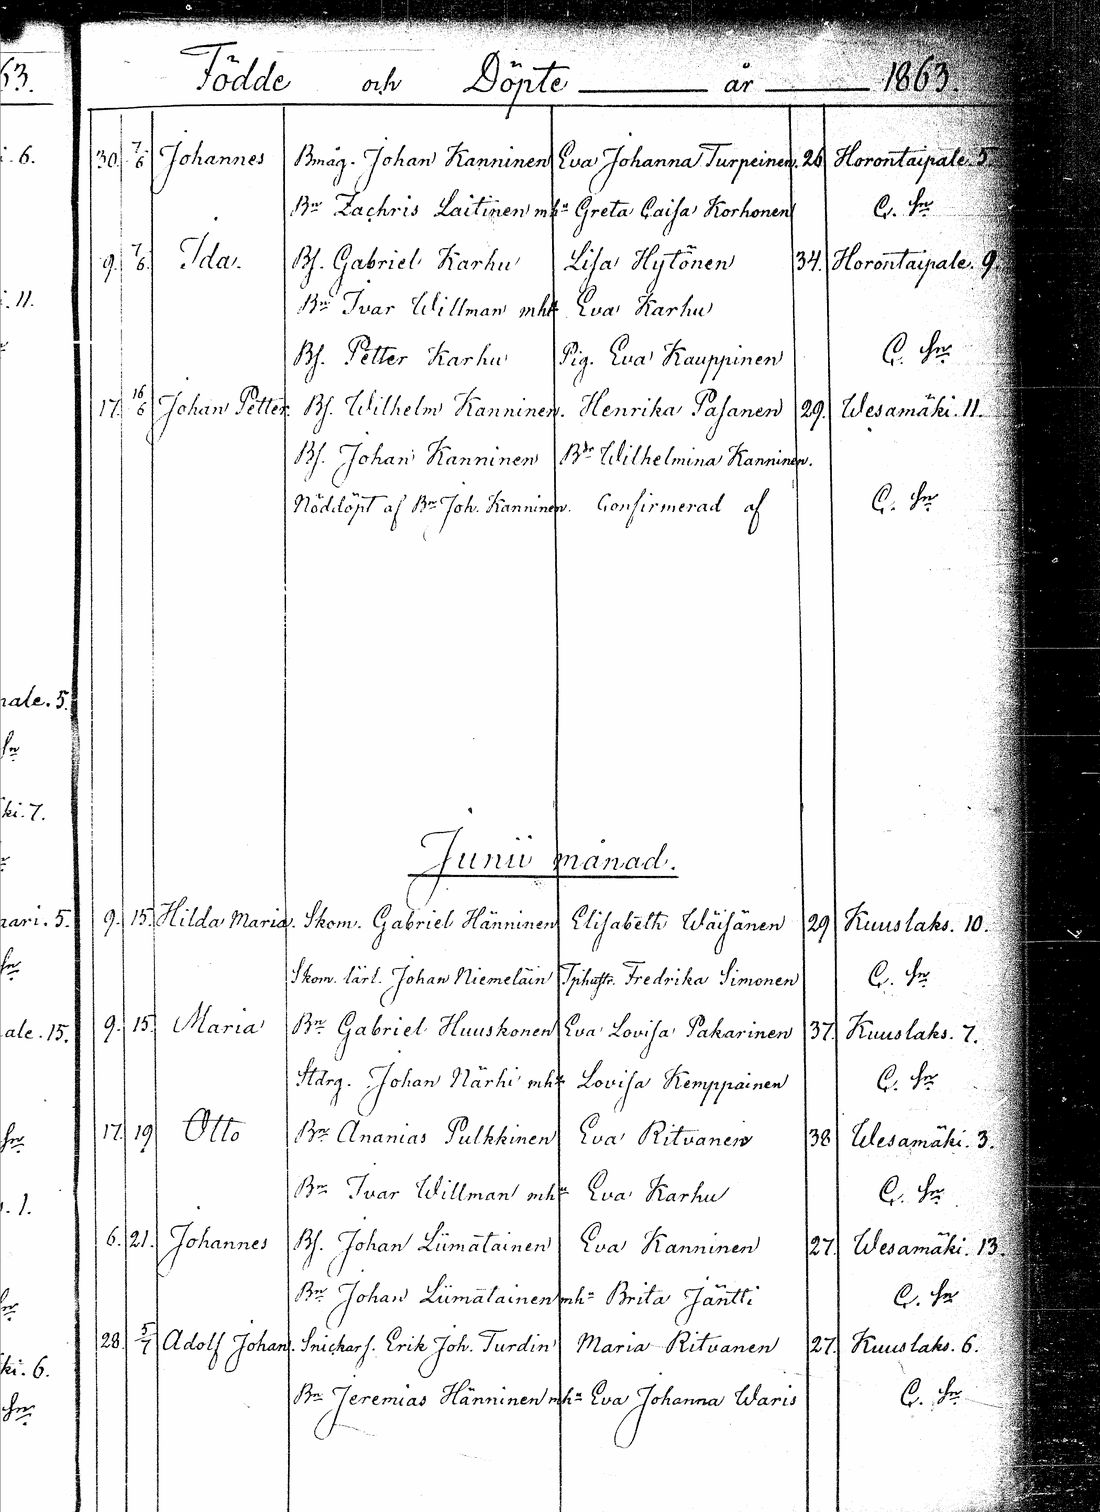 63.
Födde och Döpte år 1863.
i. 6. 30. 7/6 Johannes Bmåg. Johan Kanninen Eva Johanna Turpeinen. 26 Horontaipale. 5
Bn Zachris Laitinen mhu Greta Caisa Korhonen C. fn
9. 7/6. Ida. Bs. Gabriel Karhu Lisa Hytönen 34. Horontaipale. 9.
i. 11. Bn Ivar Willman mhu Eva Karhu
Bs. Petter Karhu Pig. Eva Kauppinen C. fn
17. 16/6 Johan Petter. Bs. Wilhelm Kanninen. Henrika Pasanen 29. Wesamäki. 11.
Bs. Johan Kanninen Bdr Wilhelmina Kanninen.
Nöddöpt af Bn Joh. Kanninen. Confirmerad af C. fn
pale. 5.
fn
ki. 7.
Junii månad.
nari. 5. 9. 15. Hilda Maria. Skom. Gabriel Hänninen Elisabeth Wäisänen 29 Kuuslaks. 10.
fn Skom. lärl. Johan Niemeläin Fredrika Simonen C. fn
ale. 15. 9. 15. Maria Bn Gabriel Huuskonen Eva Lovisa Pakarinen 37. Kuuslaks. 7.
Stdrg. Johan Närhi mhu Lovisa Kemppainen C. fn
fn 17. 19 Otto Bn Ananias Pulkkinen Eva Ritvanen 38 Wesamäki. 3.
. 1. Bn Ivar Willman mhu Eva Karhu C. fn
6. 21. Johannes Bs. Johan Liimatainen Eva Kanninen 27. Wesamäki. 13.
fn Bn Johan Liimatainen mhu Brita Jäntti C. fn
ki. 6. 28. 5/7 Adolf Johan. Snickars. Erik Joh. Turdin Maria Ritvanen 27. Kuuslaks. 6.
fn Bn Jeremias Hänninen mhu Eva Johanna Waris C. fn